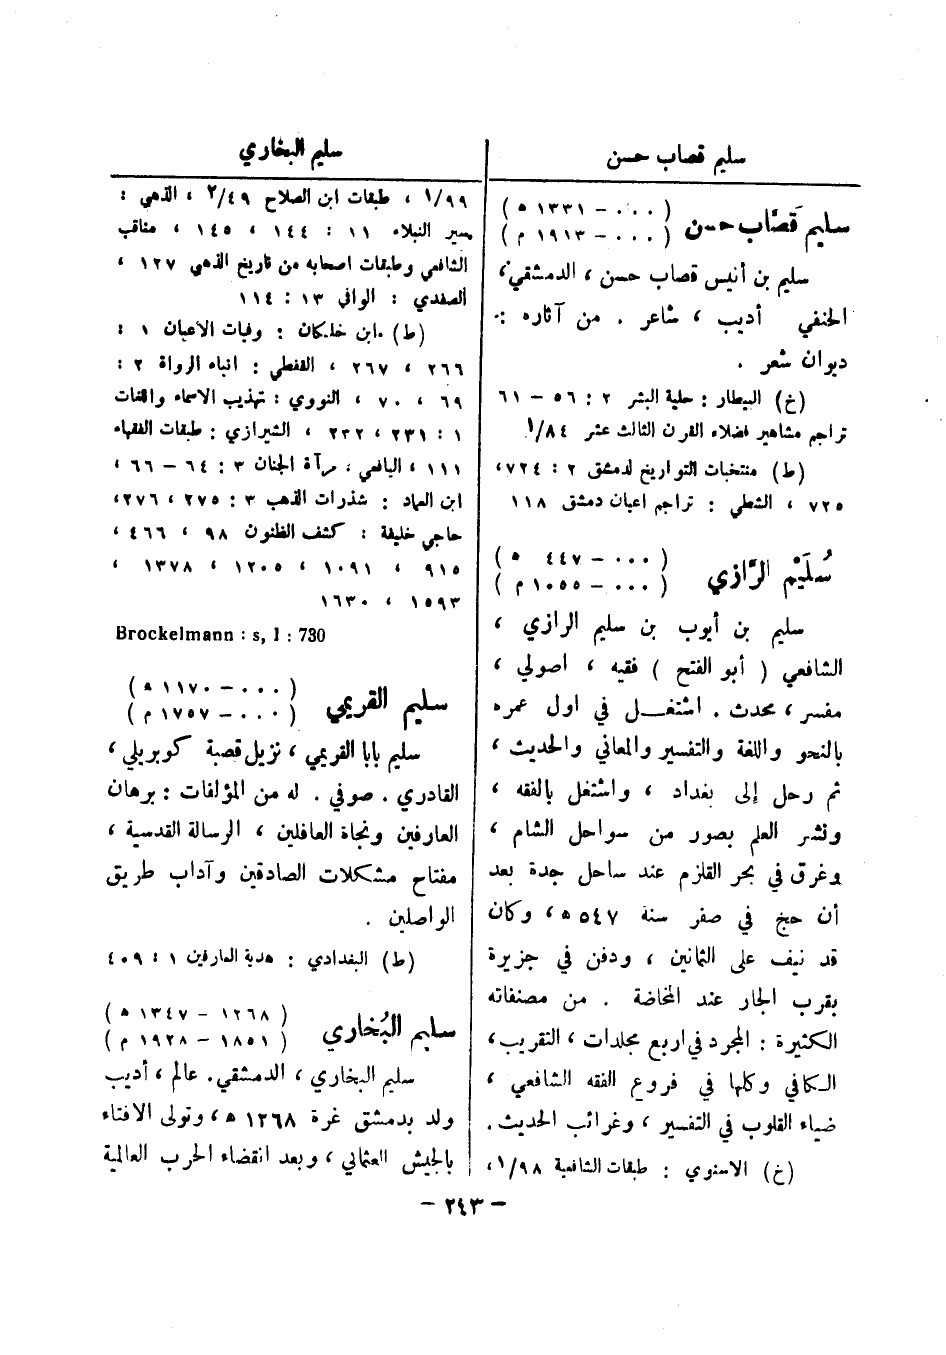 سليم قصاب حسن
سليم قَصَّاب حسن ( ٠٠٠ – ١٣٣١ ه )
( ٠٠٠ – ١٩١٣ م )
سليم بن أنيس قصاب حسن ، الدمشقي ،
الحنفي أديب ، شاعر . من آثاره :
ديوان شعر .
(خ) البيطار : حلية البشر ٢ : ٥٦ – ٦١
تراجم مشاهير فضلاء القرن الثالث عشر ٨٤/١
(ط) منتخبات التواريخ لدمشق ٢ : ٧٢٤،
٧٢٥ ، الشطي : تراجم اعيان دمشق ١١٨
سُلَيْم الرَّازي ( ٠٠٠ – ٤٤٧ ه )
( ٠٠٠ – ١٠٥٥ م )
سليم بن أيوب بن سليم الرازي ،
الشافعي ( أبو الفتح ) فقيه ، اصولي ،
مفسر ، محدث . اشتغل في اول عمره
بالنحو واللغة والتفسير والمعاني والحديث ،
ثم رحل إلى بغداد ، واشتغل بالفقه ،
ونشر العلم بصور من سواحل الشام ،
وغرق في بحر القلزم عند ساحل جدة بعد
أن حج في صفر سنة ٥٤٧ ه ، وكان
قد نيف على الثمانين ، ودفن في جزيرة
بقرب الجار عند المخاضة . من مصنفاته
الكثيرة : المجرد في اربع مجلدات ، التقريب ،
الكافي وكلها في فروع الفقه الشافعي ،
ضياء القلوب في التفسير ، وغرائب الحديث .
(خ) الاسنوي : طبقات الشافعية ٩٨/١،
سليم البخاري
٩٩/١ ، طبقات ابن الصلاح ٤٩/٢ ، الذهبي :
سير النبلاء ١١ : ١٤٤ ، ١٤٥ ، مناقب
الشافعي وطبقات اصحابه من تاريخ الذهبي ١٢٧ ،
الصفدي : الوافي ١٣ : ١١٤
(ط) ابن خلكان : وفيات الأعيان ١ :
٢٦٦ ، ٢٦٧ ، القفطي : انباه الرواة ٢ :
٦٩ ، ٧٠ ، النووي : تهذيب الاسماء واللغات
١ : ٢٣١ ، ٢٣٢ ، الشيرازي : طبقات الفقهاء
١١١ ، اليافعي : مرآة الجنان ٣ : ٦٤ – ٦٦ ،
ابن العماد : شذرات الذهب ٣ : ٢٧٥ ، ٢٧٦،
حاجي خليفة : كشف الظنون ٩٨ ، ٤٦٦ ،
٩١٥ ، ١٠٩١ ، ١٢٠٥ ، ١٣٧٨ ،
١٥٩٣ ، ١٦٣٠
Brockelmann : s, I : 730
سليم القريمي ( ٠٠٠ – ١١٧٠ ه )
( ٠٠٠ – ١٧٥٧ م )
سليم بابا القريمي ، نزيل قصبة كوبريلي ،
القادري . صوفي . له من المؤلفات : برهان
العارفين ونجاة الغافلين ، الرسالة القدسية ،
مفتاح مشكلات الصادقين وآداب طريق
الواصلين .
(ط) البغدادي : هدية العارفين ١ : ٤٠٩
سليم البُخاري ( ١٢٦٨ – ١٣٤٧ ه )
( ١٨٥١ – ١٩٢٨ م )
سليم البخاري ، الدمشقي . عالم ، أديب
ولد بدمشق غرة ١٢٦٨ ه ، وتولى الافتاء
بالجيش العثماني ، وبعد انقضاء الحرب العالمية
– ٢٤٣ –